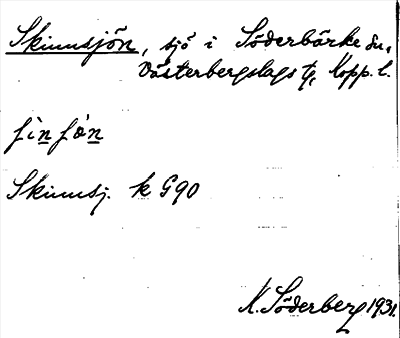 Skinnsjön, sjö i Söderbärke sn,
Västerbergslags tg, Kopp. l.
Skinnsj. k G90
K. Söderberg 1931.